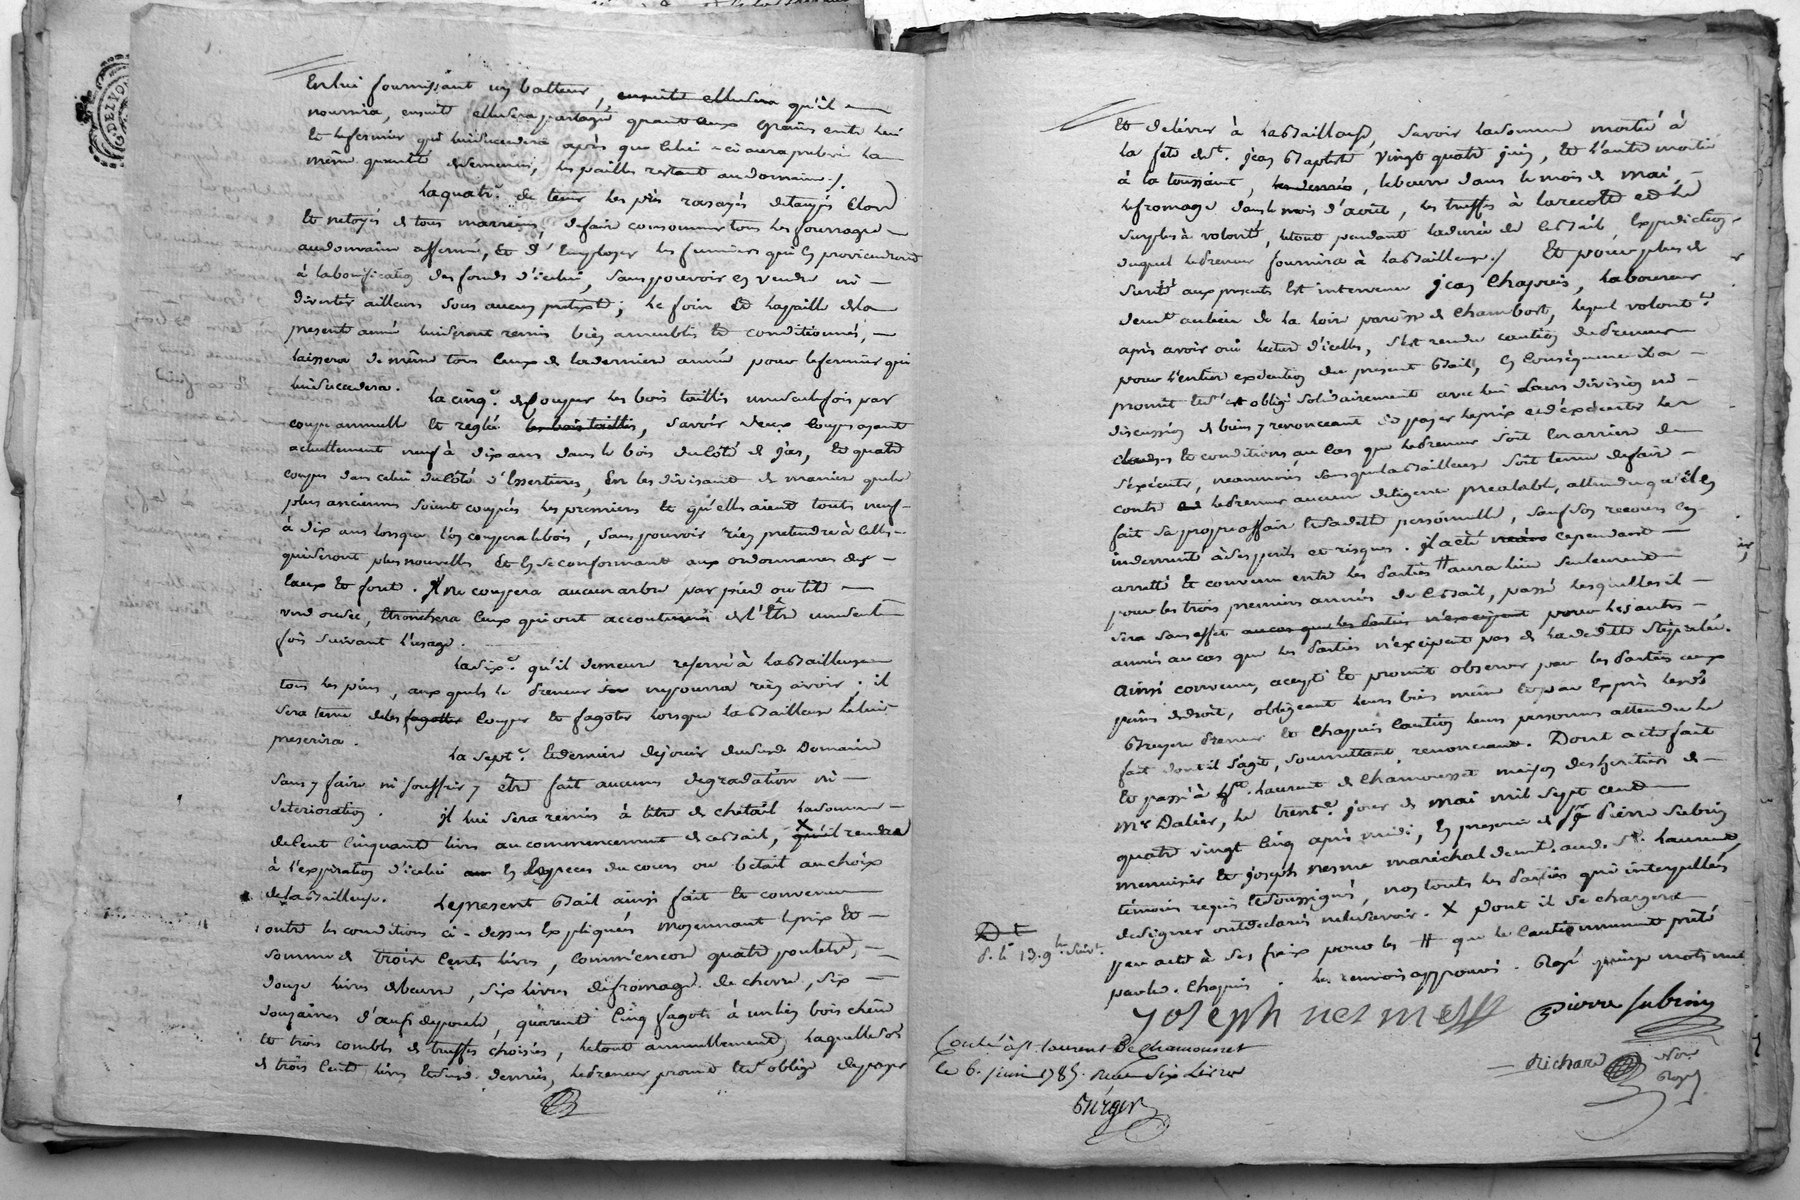 G. DE LYON
En lui fournissant un batteur, ensuite elle sera qu'il
nourrira, ensuite elle sera partagée quant aux grains entre lui
et le fermier qui lui succedera après que celui-ci aura prelevé la
même quantité de semences, les pailles restant au domaine./.
La quatr.e de tenir les prés rasayés detaupés clore
et netoyés de tous marreins, de faire consommer tous les fourrages
au domaine affermé, et d'employer les fumiers qui en proviendront
à la bonification des fonds d'icelui, sans pouvoir en vendre ni
divertir ailleurs sous aucun pretexte; le foin et la paille de la
present année lui seront remis bien ameublis et conditionnés,
laissera de même tous ceux de la derniere année pour le fermier qui
lui succedera.
La cinq.e de couper les bois taillis une seule fois par
coupe annuelle et reglée les bois taillis, savoir deux coupes ayant
actuellement neuf à dix ans dans le bois du côté de jas, et quatre
coupes dans celui du côté d'Essertines, en les divisant de maniere que les
plus anciennes soient coupées les premieres et qu'elles aient toutes neuf
à dix ans lorsque l'on coupera le bois, sans pouvoir rien pretendre à celles
qui seront plus nouvelles et en se conformant aux ordonnances des
eaux et foret. Il ne coupera aucun arbre par pied ou tête
verd ou sec, ebranchera ceux qui ont accoutumés de l'être une seule
fois suivant l'usage.
La six.e qu'il demeure reservé à la Bailleuse
tous les pins, aux quels le Preneur ne pourra rien avoir; il
sera tenu de les fagotter couper et fagoter lorsque la Bailleuse le lui
prescrira.
La sept.e et derniere de jouir dudit Domaine
sans y faire ni souffrir y être fait aucune degradation ni
deterioration. Il lui sera remis à titre de cheptail la somme
de cent cinquante livres au commencement de ce Bail, X qu'il rendra
à l'expiration d'icelui en Especes du cours ou betail au choix
de la Bailleuse. Le present Bail ainsi fait et convenu
outre les conditions ci-dessus expliquées moyennant le prix et
somme de trois cents livres, comm'encore quatre poulets,
douze livres de beurre, six livres de fromage de chevre, six
douzaines d'œufs de poule, quarente cinq fagots à un lien bois chêne
et trois combles de truffes choisies, le tout annuellement, laquelle so.
de trois cent livres et susd. denrées, le Preneur promet et s'oblige de payer
et delivrer à la Bailleuse, savoir la somme moitié à
la fete de St. jean Baptiste vingt quatre juin, et l'autre moitié
à la toussaint, les denrées, le beurre dans le mois de mai,
le fromage dans le mois d'août, les truffes à la recolte et le
surplus à volonté, le tout pendant la durée de ce Bail, Expedition
duquel le Preneur fournira à la Bailleuse./ Et pour plus de
sureté aux presents Est intervenu jean Chapuis, laboureur
demt. au lieu de la loire paroisse de Chambost, lequel volont.t
après avoir oui lecture d'icelles, s'est rendu caution du Preneur
pour l'entiere execution du present Bail, en consequence il a
promit et s'est obligé solidairement avec lui sans division ni
discussion de biens y renonceant de payer le prix et d'exécuter les
clauses et conditions au cas que le Preneur soit en arriere de
s'exécuter, neanmoins sans que la Bailleuse soit tenue de faire
contre le Preneur aucune diligence prealable, attendu qu'il en
fait sa propre affaire et sa dette personnelle, sauf son recours en
indemnité à ses perils et risques. Il a été cependant
arretté et convenu entre les Parties # aura lieu seulement
pour les trois premieres années de ce Bail, passé lesquelles il
sera sans effet au cas que les Parties n'excipent pour les autres
années au cas que les Parties n'excipent pas de la dedite stipulée.
Ainsi convenu, accepté et promit observer par les Parties aux
peines de droit, obligeant leurs biens même et par Exprès lesdits
Preneur et Chapuis caution leurs personnes attendu le
fait dont il s'agit, soumettant, renonceant. Dont acte fait
et passé à St. Laurent de Chamousset maison des heritiers de
Mr Dalier, le trent.e jour de mai mil sept cent
quatre vingt cinq après midi, en presence de Sr. Pierre Subrin
menuisier et joseph nesme maréchal demt. aud. St. Laurent,
témoins requis et soussignés, non toutes les Parties qui interpellées
de signer ont declarés ne le savoir. X Dont il se chargera
par acte à ses frais pour les # que le cautionnement prété
par led. Chapuis. Les renvois approuvés. Rayé quinze mots nuls
joseph nesme
Pierre Subrin
Richard Nore Royal
8. le 13. 9bre suiv.t
Contlé à St. Laurent De Chamousset
le 6. juin 1785. reçu six livres
Berger